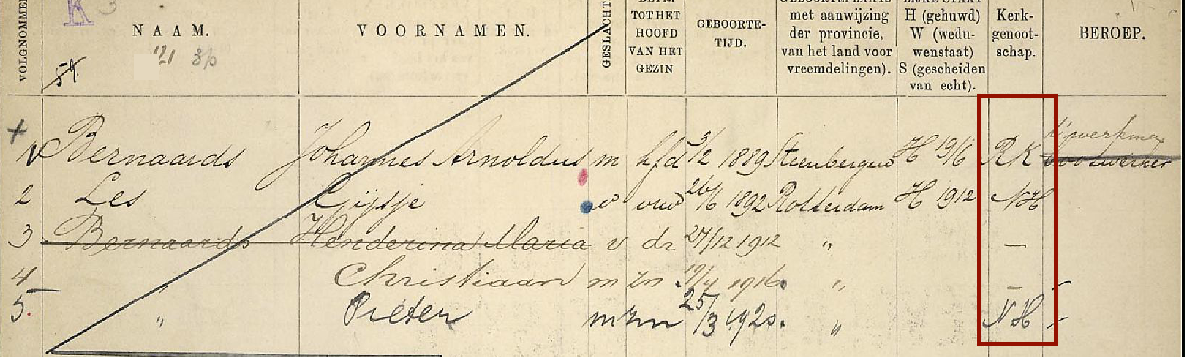 K 3
VOLGNOMMER
NAAM.
VOORNAMEN.
GESLACHT
TOT HET HOOFD VAN HET GEZIN
GEBOORTE-TIJD.
met aanwijzing der provincie, van het land voor vreemdelingen).
H (gehuwd) W (wedu-wenstaat) S (gescheiden van echt).
Kerk-genoot-schap.
BEROEP.
1 Bernaards Johannes Arnoldus m hfd 3/2 1889 Steenbergen H 19/6 RK
2 Les Gijsje v vrw 26/6 1892 Rotterdam H 1912 NH
3 Bernaards Henderina Maria v dr 27/12 1912 " —
4 " Christiaan m zn 19/4 1916 " —
5. " Pieter m zn 25/3 1920. " NH